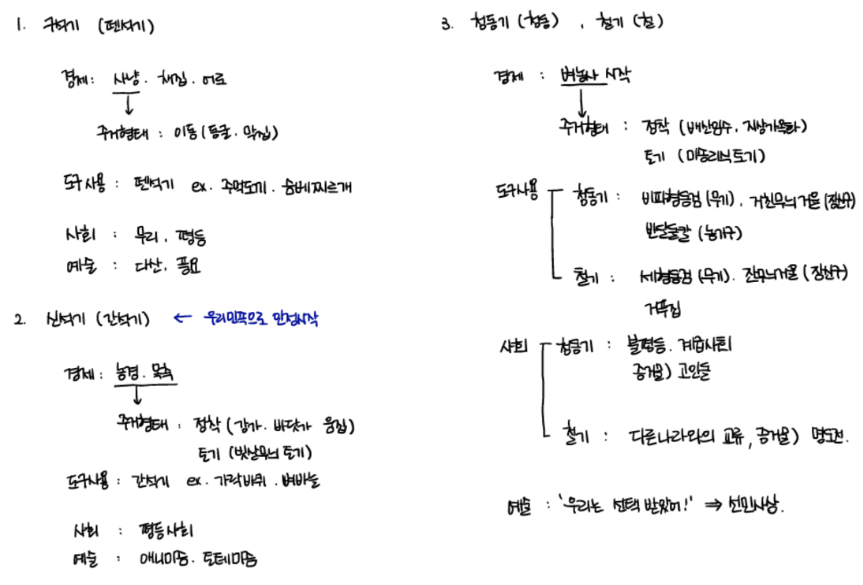 1. 구석기 (뗀석기)
경제: 사냥. 채집. 어로
주거형태 : 이동 (동굴. 막집)
도구사용 : 뗀석기 ex. 주먹도끼. 슴베찌르개
사회 : 무리, 평등
예술 : 다산, 풍요
2. 신석기 (간석기) ← 우리민족으로 인정시작
경제: 농경. 목축
주거형태 : 정착 (강가. 바닷가 움집)
토기 (빗살무늬 토기)
도구사용 : 간석기 ex. 가락바퀴. 뼈바늘
사회 : 평등사회
예술 : 애니미즘. 토테미즘
3. 청동기 (청동) , 철기 (철)
경제 : 벼농사 시작
주거형태 : 정착 (배산임수. 지상가옥화)
토기 (미송리식토기)
도구사용
청동기 : 비파형동검 (무기), 거친무늬거울 (장신구)
반달돌칼 (농기구)
철기 : 세형동검 (무기). 잔무늬거울 (장신구)
거푸집
사회
청동기 : 불평등. 계급사회
증거물) 고인돌
철기 : 다른나라와의 교류, 증거물) 명도전.
예술 : '우리는 선택 받았어!' ⇒ 선민사상.